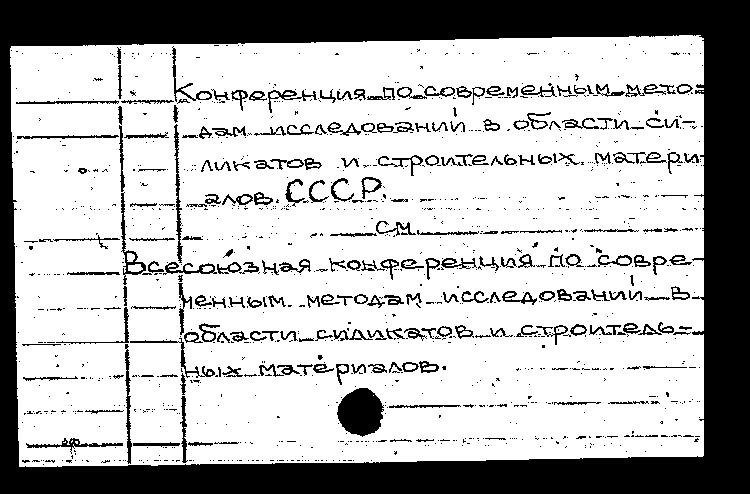 Конференция по современным мето-
дам исследований в области си-
ликатов и строительных матери
алов. СССР.
см.
Всесоюзная конференция по совре-
менным методам исследований в
области силикатов и строитель-
ных материалов.